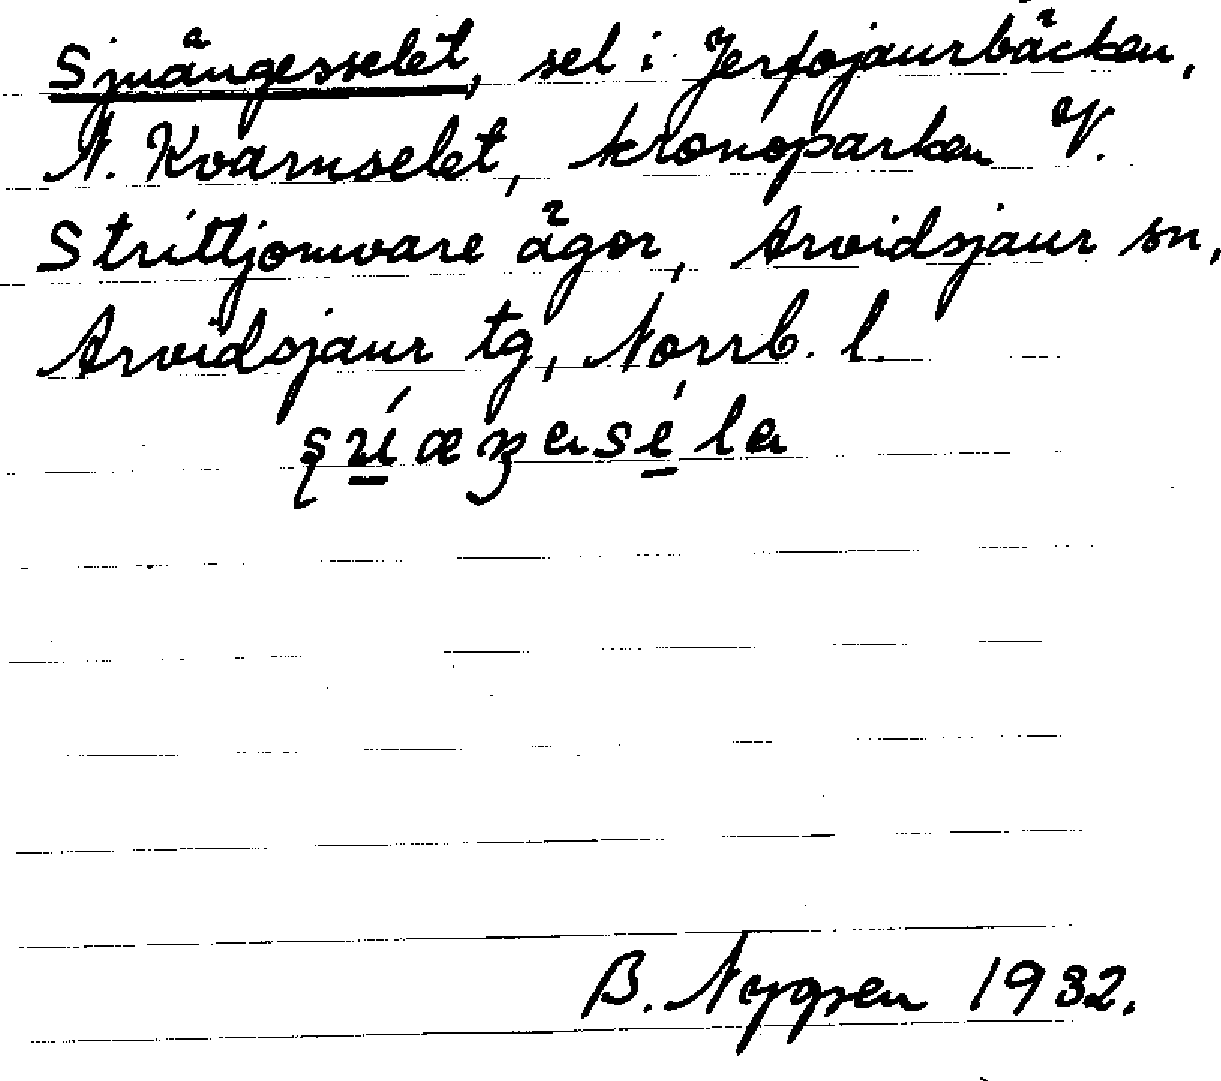 Sjuängesselet, sel i Jerfojaurbäcken,
N. Kvarnselet, kronoparken V.
Strittjomvare ägor, Arvidsjaur sn,
Arvidsjaur tg, Norrb. l.
B. Nygren 1932.